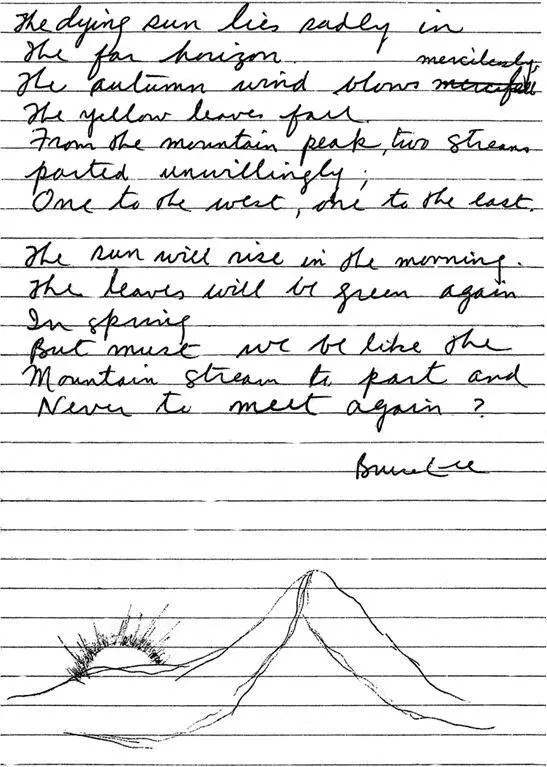 The dying sun lies sadly in
The far horizon.
The autumn wind blows mercilessly.
The yellow leaves fall.
From the mountain peak, two streams
parted unwillingly;
One to the west, one to the east.
The sun will rise in the morning.
The leaves will be green again
In spring
But must we be like the
Mountain stream to part and
Never to meet again?
Bruce Lee